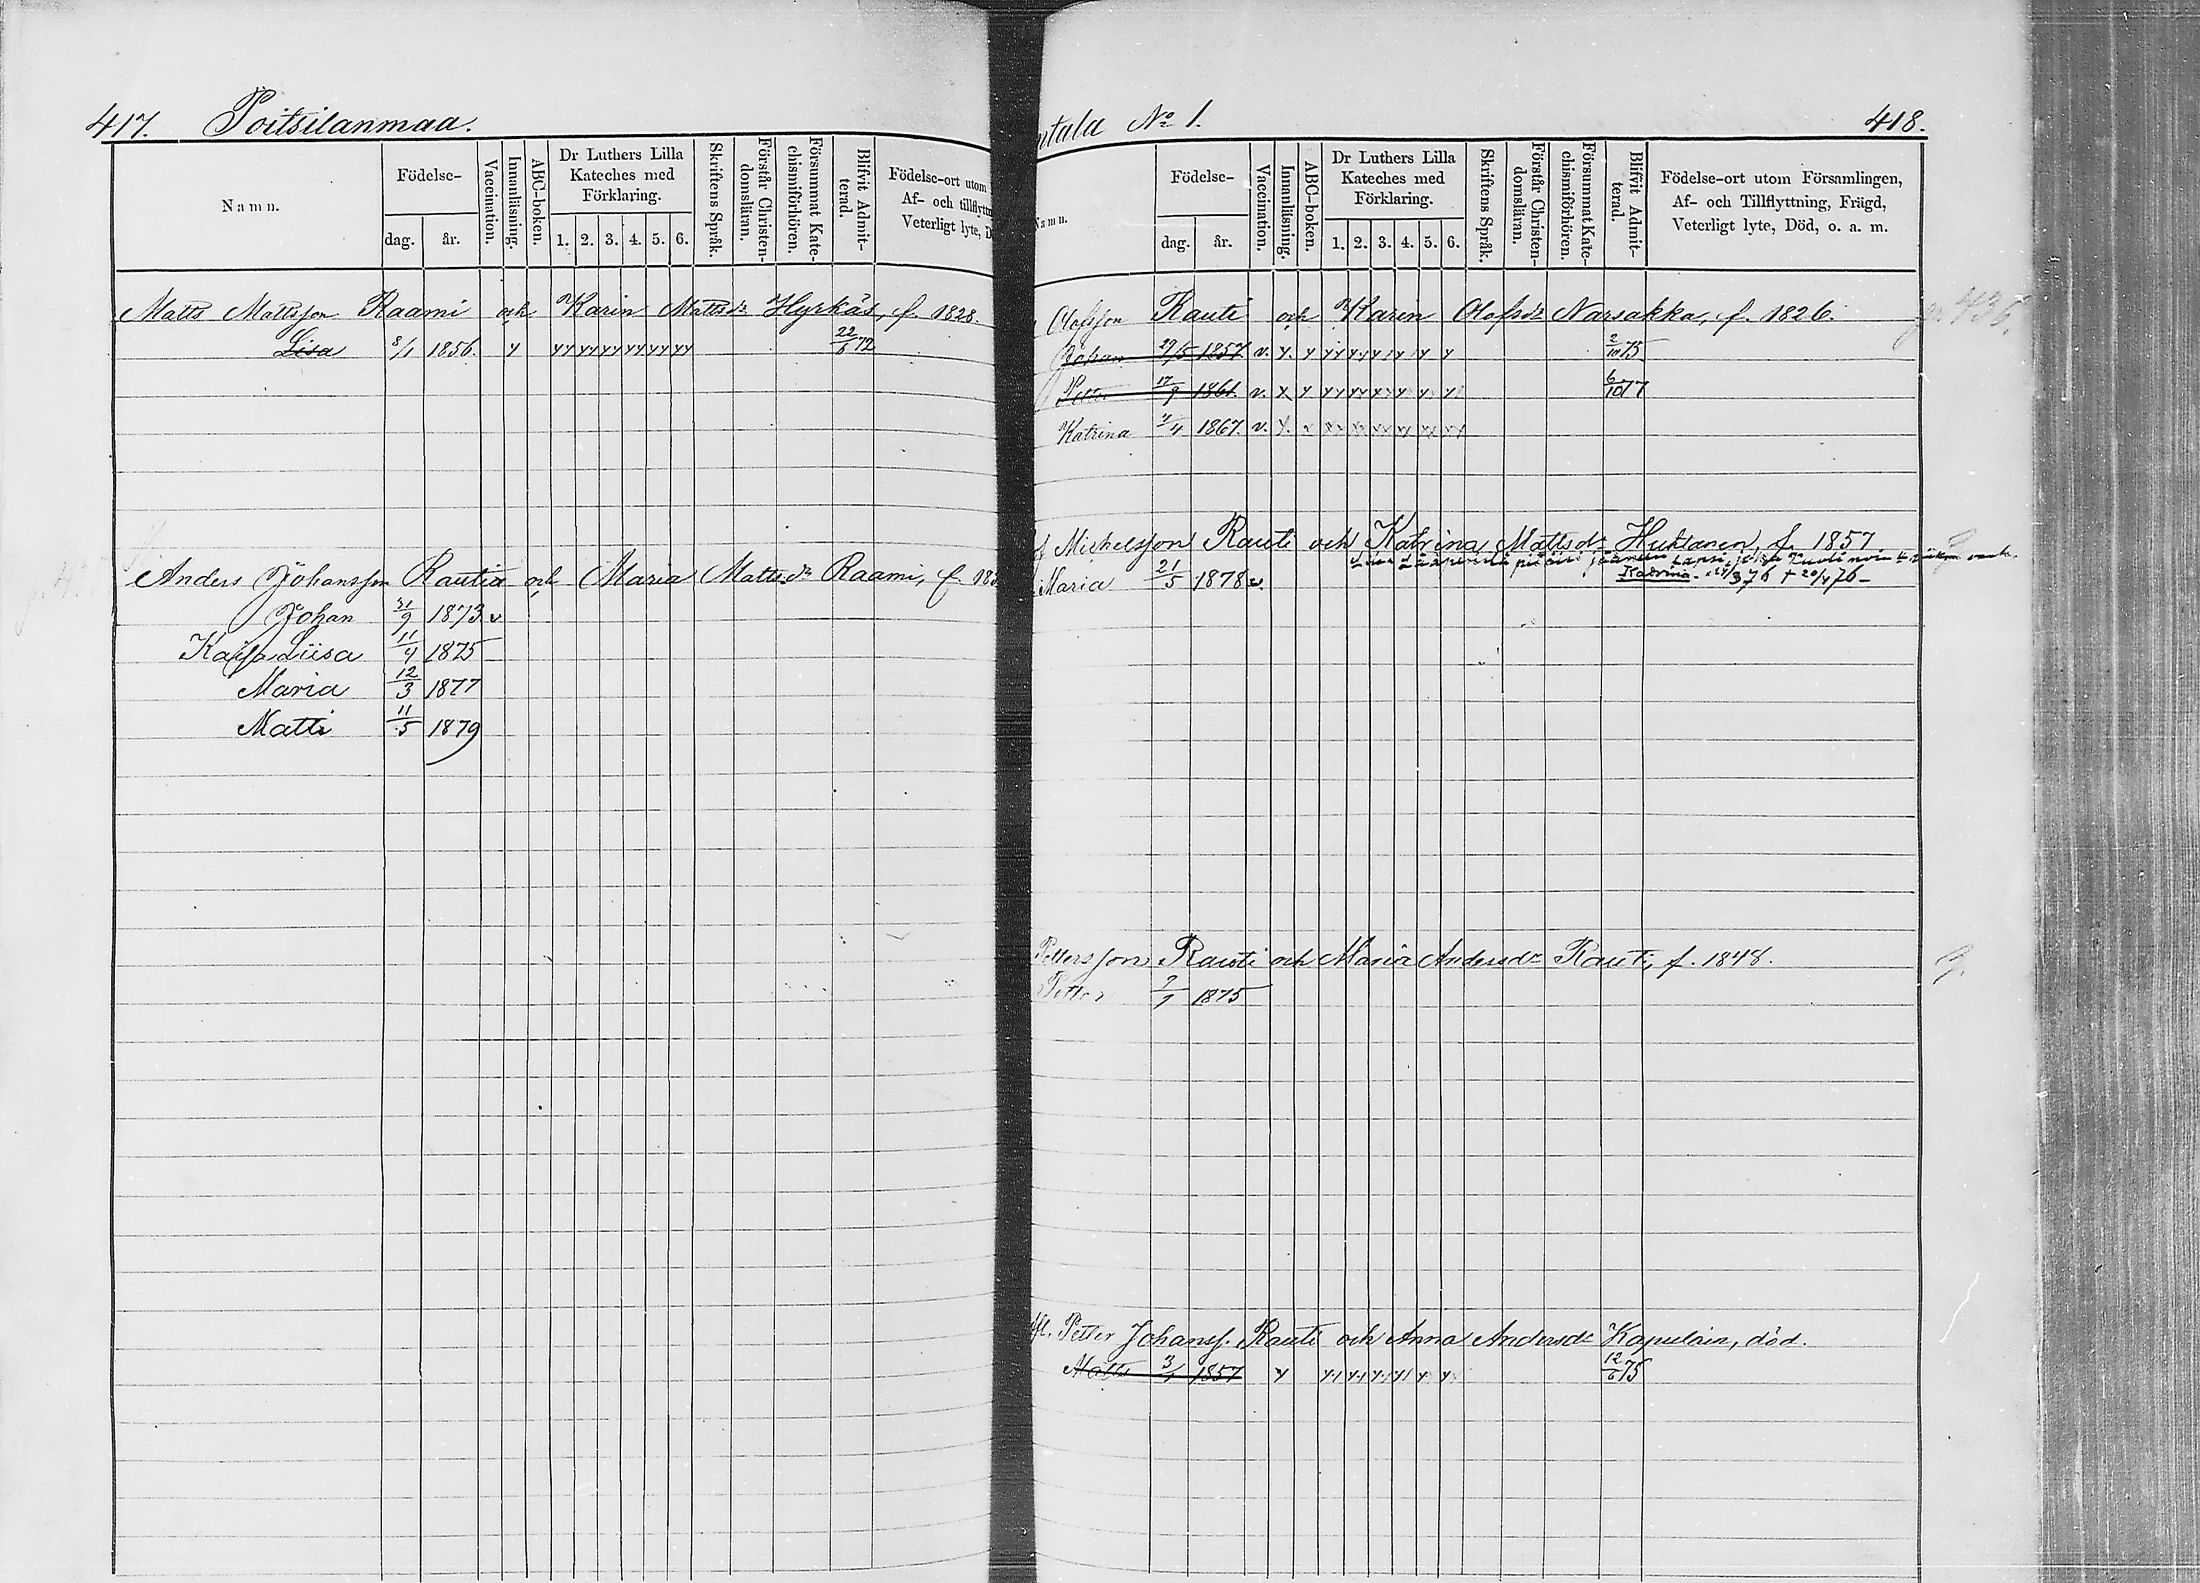 417. Poitsilanmaa.
Namn. Födelse- dag. år. Vaccination. Innanläsning. ABC-boken. Dr Luthers Lilla Kateches med Förklaring. 1. 2. 3. 4. 5. 6. Skriftens Språk. Förstår Christen-domsläran. Försummat Kate-chismiförhören. Blifvit Admit-terad. Födelse-ort utom Af- och tillflytt Veterligt lyte, D
Matts Mattsson Raami och Karin Mattsdr Hyrkäs, f. 1828.
Lisa 8/1 1856. y yy yy yy yy yy yy 22/6 72
Anders Johansson Rautia och Maria Mattsdr Raami, f. 18
Johan 21/9 1873 v
Kaisa Liisa 11/4 1875
Maria 12/3 1877
Matti 11/5 1879
ntala No 1. 418.
Namn. Födelse- dag. år. Vaccination. Innanläsning. ABC-boken. Dr Luthers Lilla Kateches med Förklaring. 1. 2. 3. 4. 5. 6. Skriftens Språk. Förstår Christen-domsläran. Försummat Kate-chismiförhören. Blifvit Admit-terad. Födelse-ort utom Församlingen, Af- och Tillflyttning, Frägd, Veterligt lyte, Död, o. a. m.
Olofsson Rauti och Karin Olofsdr Narsakka, f. 1826. 436.
Johan 29/5 1857 v. y. y yy yy yy yy y y 2/10 75
Petter 17/9 1861. v. y y yy yy yy yy y y 6/10 77
Katrina 7/4 1867. v. y.
f Michelsson Rauti och Katrina Mattsdr Huktanen, f. 1857
Katrina 24/3 76 + 20/4 76
Maria 21/5 1878 v.
Pettersson Rauti och Maria Andersdr Rauti, f. 1848.
Petter 9/1 1875
Afl. Petter Johanss. Rauti och Anna Andersdr Kapulain, död.
Matts 3/1 1857 y 12/6 75